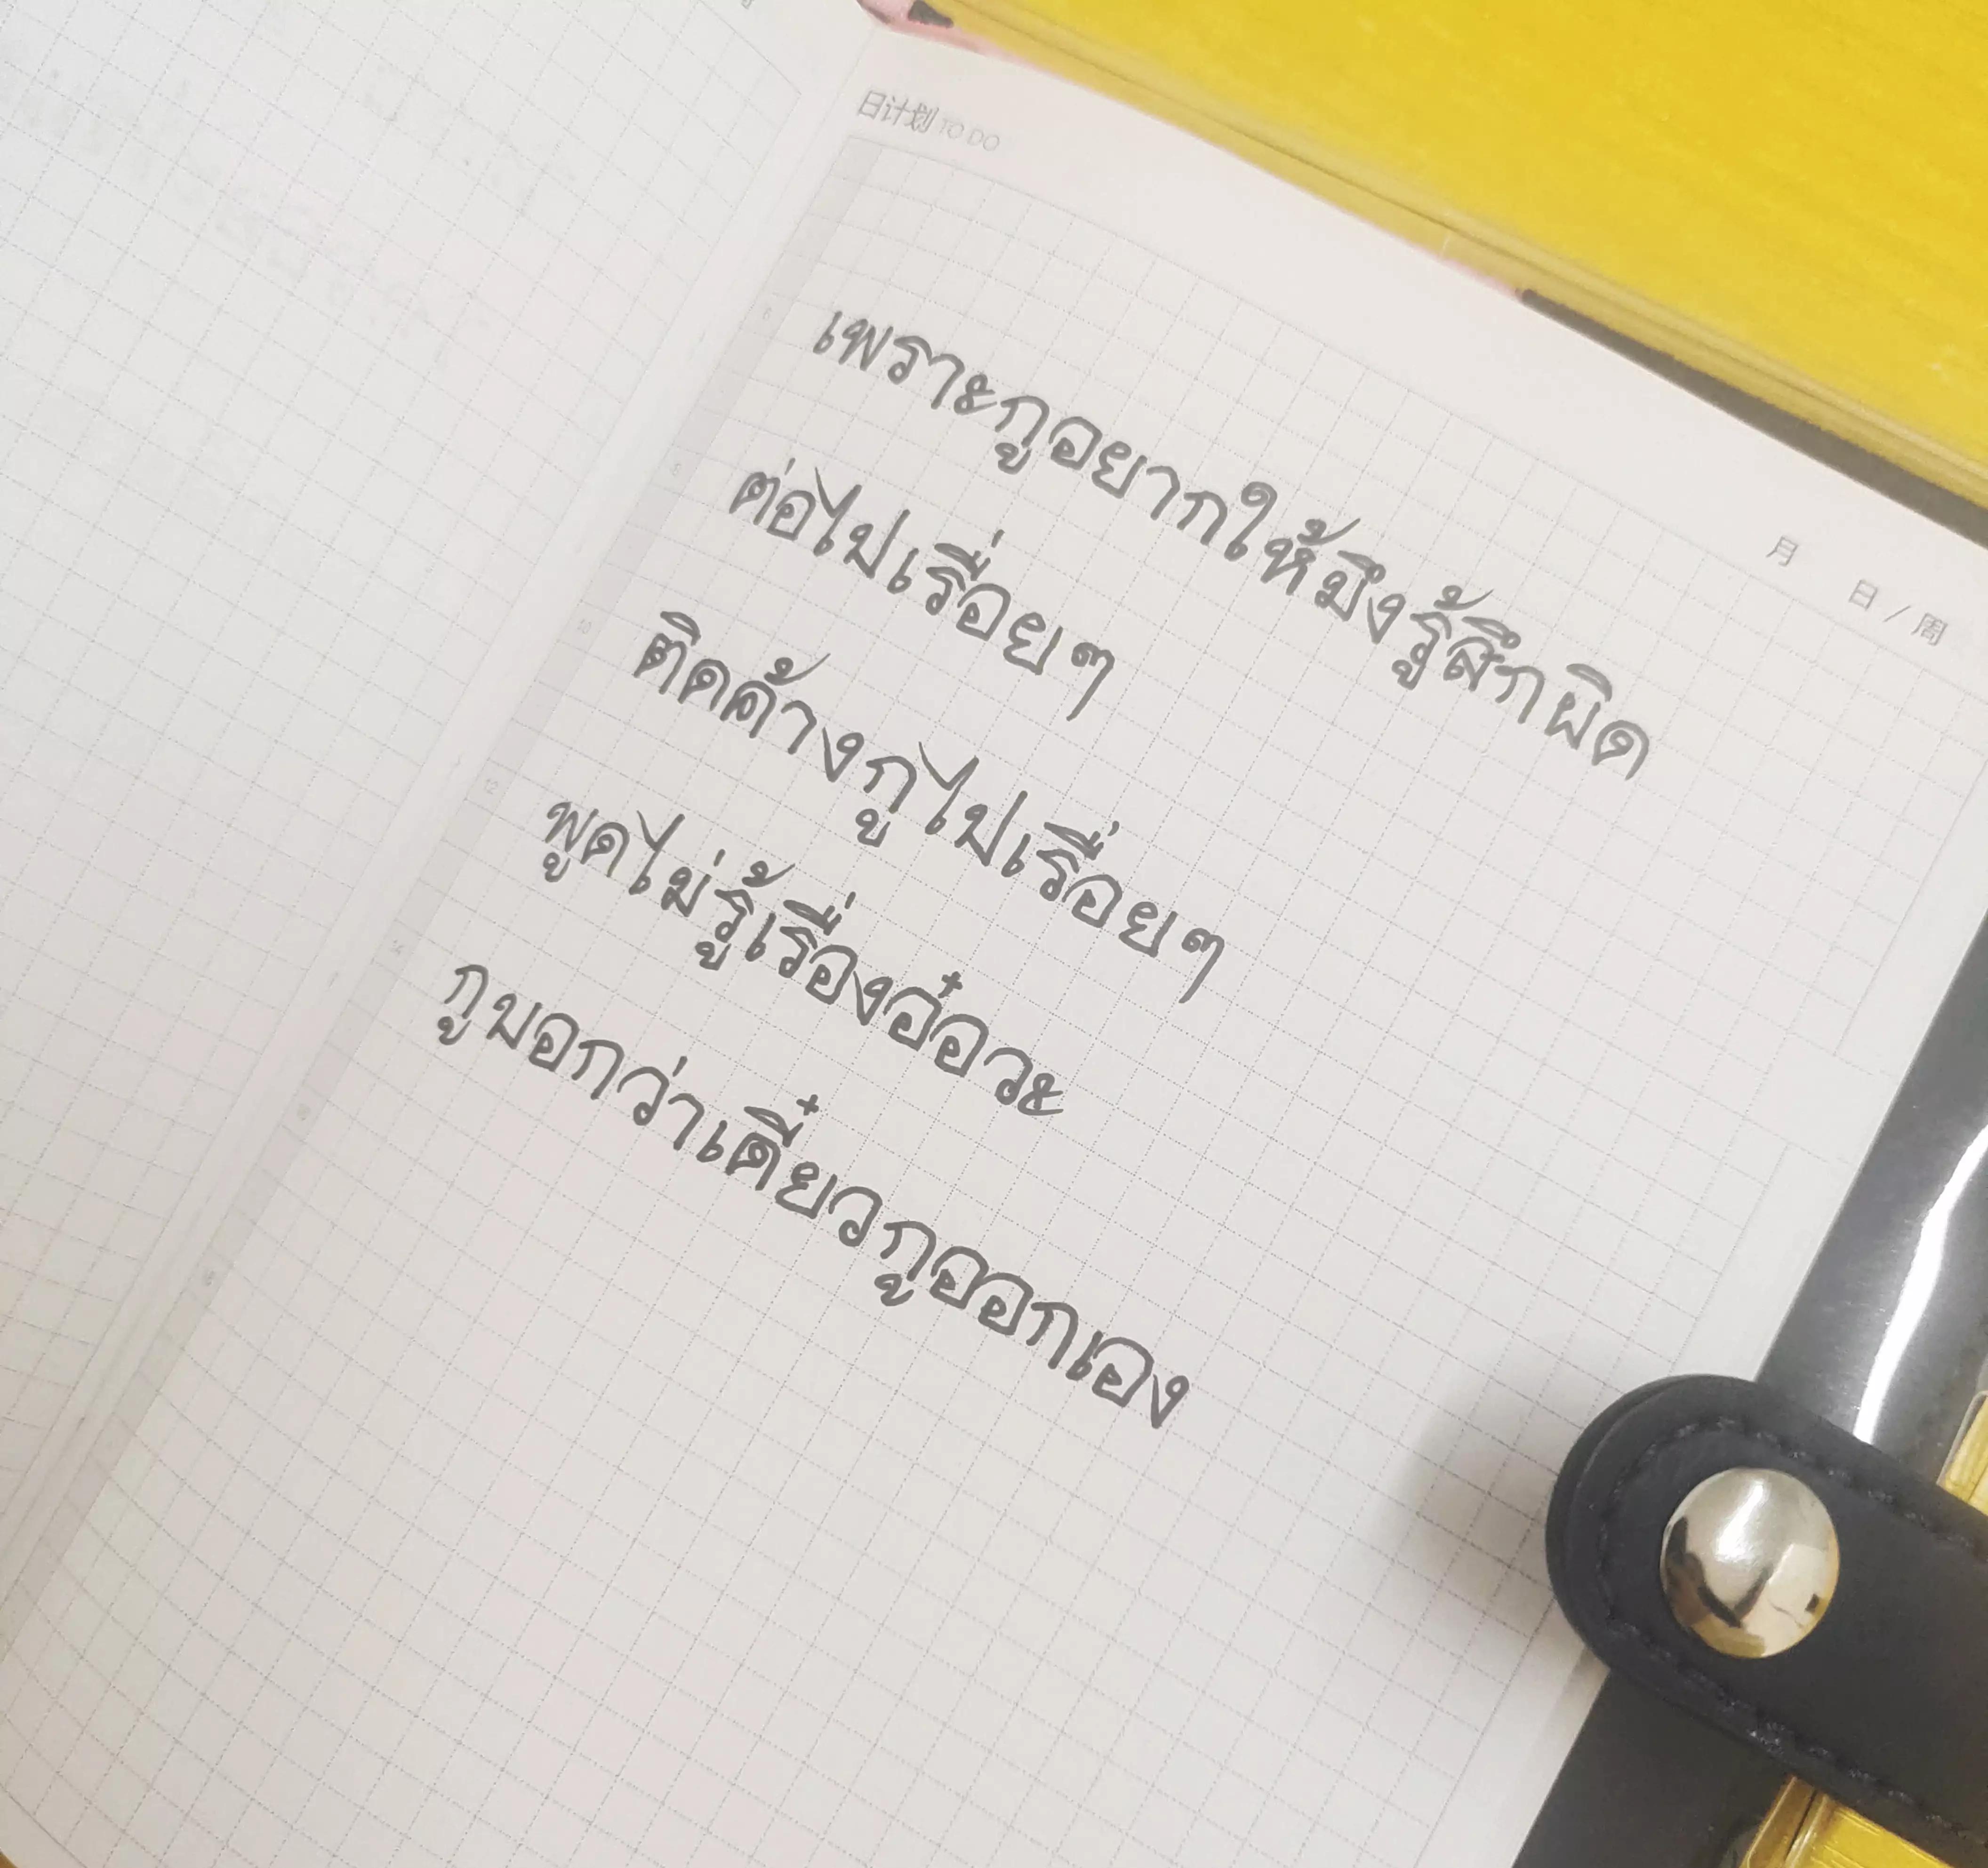 日计划 TO DO
月 日 / 周
เพราะกูอยากให้มึงรู้สึกผิด
ต่อไปเรื่อยๆ
ติดค้างกูไปเรื่อยๆ
พูดไม่รู้เรื่องอ๋อวะ
กูบอกว่าเดี๋ยวกูออกเอง
6
8
10
12
14